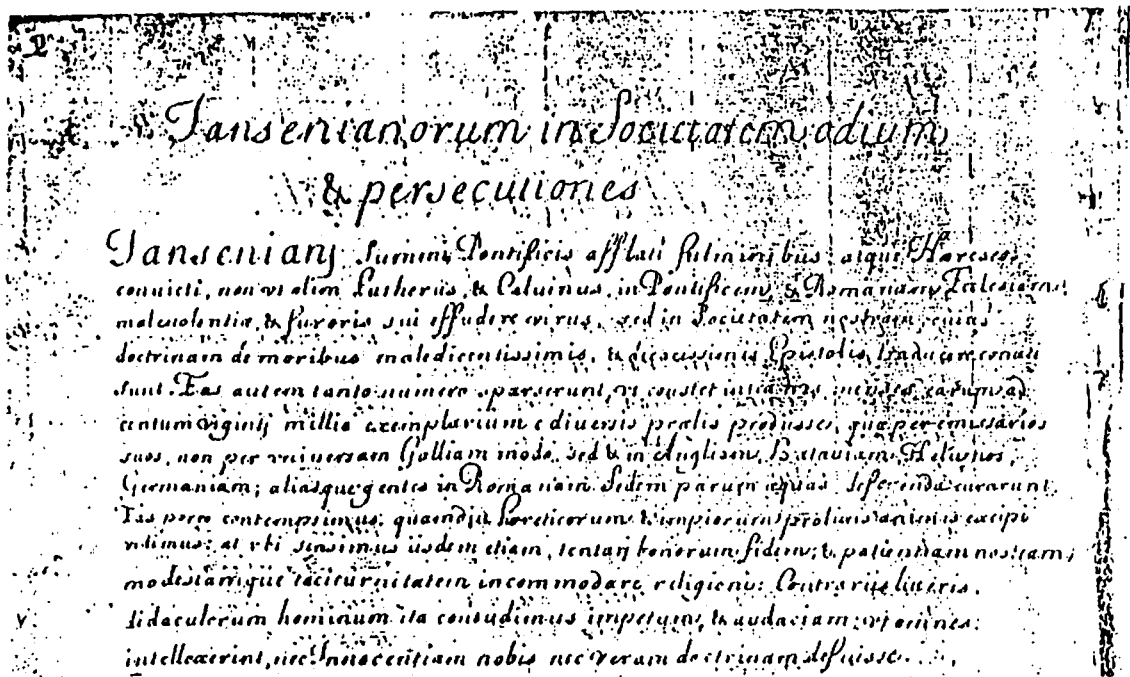 Jansenianorum in Societatem odium
& persecutiones
Janseniani Summi Pontificis afflati fulminibus, atque Hæreseos
convicti, non vt olim Lutherus, & Caluinus, in Pontificem, & Romanam Ecclesiam
maleuolentiæ, & furoris sui effudere virus, sed in Societatem nostram, cuius
doctrinam de moribus maledicentissimis, & Epistolis, traducere conati
sunt. Eas autem tanto numero sparserunt, vt constet intra tres menses earum ad
centum viginti millia exemplarium e diuersis prælis prodijsse, quæ per emissarios
suos, non per vniuersam Galliam modo, sed & in Angliam, Batauiam, Heluetios,
Germaniam; aliasque gentes in Romanam Sedem parum æquas deferenda curarunt.
Eas porro contempsimus, quamdiu hæreticorum & impiorum animis excipi
vidimus: at vbi sensimus ijsdem etiam, tentari bonorum fidem, & patientiam nostram,
modestiamque taciturnitatem incommodare religioni: Contrariis literis
hominum ita contudimus impetum, & audaciam, vt omnes
intellexerint, nec Innocentiam nobis nec veram doctrinam defuisse.